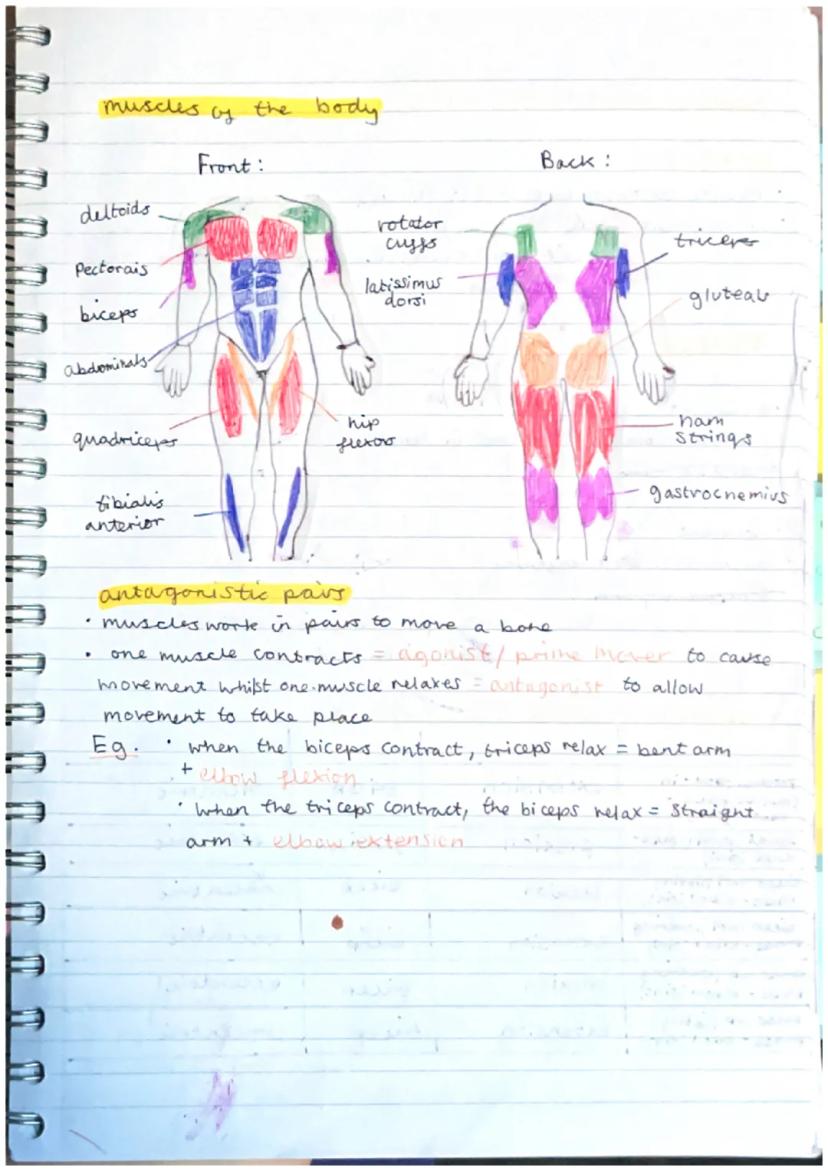 muscles of the body
Front :
Back :
deltoids
Pectorals
biceps
abdominals
quadriceps
hip
flexors
tibialis
anterior
rotator
cuffs
latissimus
dorsi
triceps
gluteals
ham
strings
gastrocnemius
antagonistic pairs
• muscles work in pairs to move a bone
• one muscle contracts = agonist/ prime mover to cause
movement whilst one muscle relaxes = antagonist to allow
movement to take place
Eg. • when the biceps contract, triceps relax = bent arm
+ elbow flexion
• when the triceps contract, the biceps relax = straight
arm + elbow extension